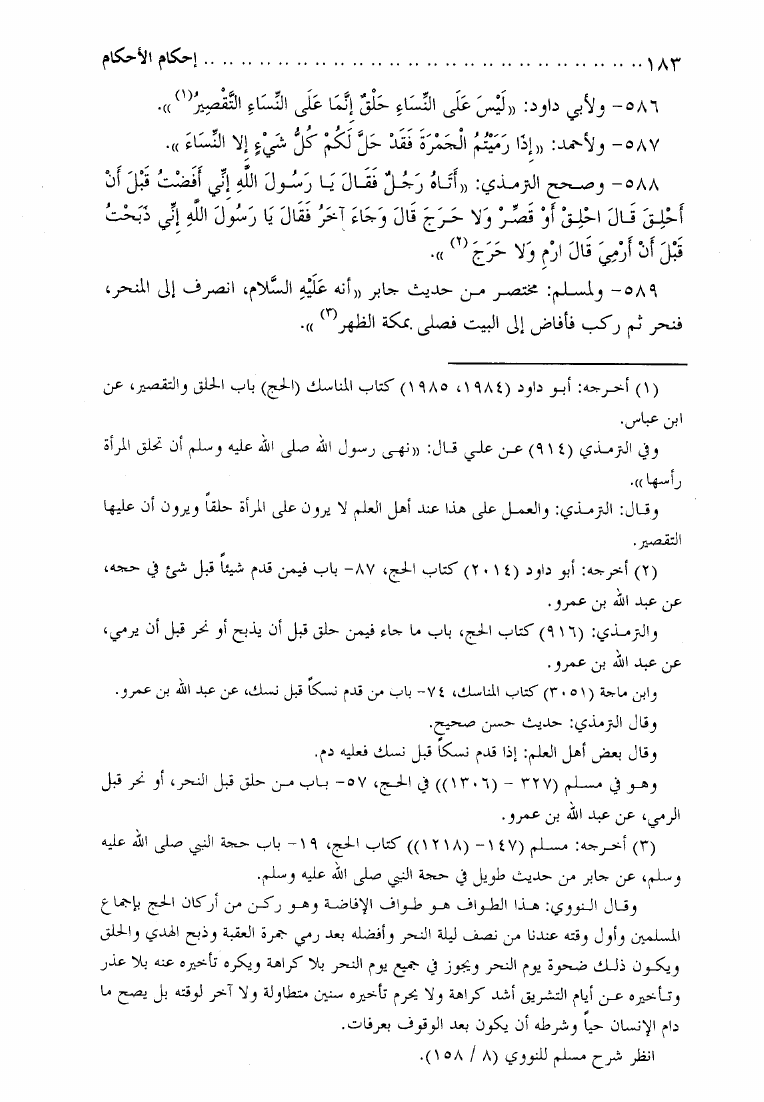 ١٨٣ .................................................. إحكام الأحكام
٥٨٦- ولأبي داود: «لَيْسَ عَلَى النِّسَاءِ حَلْقٌ إِنَّمَا عَلَى النِّسَاءِ التَّقْصِيرُ(١)».
٥٨٧- ولأحمد: «إِذَا رَمَيْتُمُ الْجَمْرَةَ فَقَدْ حَلَّ لَكُمْ كُلُّ شَيْءٍ إِلا النِّسَاءَ».
٥٨٨- وصحح الترمذي: «أَتَاهُ رَجُلٌ فَقَالَ يَا رَسُولَ اللَّهِ إِنِّي أَفَضْتُ قَبْلَ أَنْ
أَحْلِقَ قَالَ احْلِقْ أَوْ قَصِّرْ وَلا حَرَجَ قَالَ وَجَاءَ آخَرُ فَقَالَ يَا رَسُولَ اللَّهِ إِنِّي ذَبَحْتُ
قَبْلَ أَنْ أَرْمِيَ قَالَ ارْمِ وَلا حَرَجَ(٢)».
٥٨٩- ولمسلم: مختصر من حديث جابر «أنه عَلَيْهِ السَّلام، انصرف إلى المنحر،
فنحر ثم ركب فأفاض إلى البيت فصلى بمكة الظهر(٣)».
(١) أخرجه: أبو داود (١٩٨٤، ١٩٨٥) كتاب المناسك (الحج) باب الحلق والتقصير، عن
ابن عباس.
وفي الترمذي (٩١٤) عن علي قال: «نهى رسول الله صلى الله عليه وسلم أن تحلق المرأة
رأسها».
وقال: الترمذي: والعمل على هذا عند أهل العلم لا يرون على المرأة حلقاً ويرون أن عليها
التقصير.
(٢) أخرجه: أبو داود (٢٠١٤) كتاب الحج، ٨٧- باب فيمن قدم شيئاً قبل شئ في حجه،
عن عبد الله بن عمرو.
والترمذي: (٩١٦) كتاب الحج، باب ما جاء فيمن حلق قبل أن يذبح أو نحر قبل أن يرمي،
عن عبد الله بن عمرو.
وابن ماجة (٣٠٥١) كتاب المناسك، ٧٤- باب من قدم نسكاً قبل نسك، عن عبد الله بن عمرو.
وقال الترمذي: حديث حسن صحيح.
وقال بعض أهل العلم: إذا قدم نسكاً قبل نسك فعليه دم.
وهو في مسلم (٣٢٧ - (١٣٠٦)) في الحج، ٥٧- باب من حلق قبل النحر، أو نحر قبل
الرمي، عن عبد الله بن عمرو.
(٣) أخرجه: مسلم (١٤٧- (١٢١٨)) كتاب الحج، ١٩- باب حجة النبي صلى الله عليه
وسلم، عن جابر من حديث طويل في حجة النبي صلى الله عليه وسلم.
وقال النووي: هذا الطواف هو طواف الإفاضة وهو ركن من أركان الحج بإجماع
المسلمين وأول وقته عندنا من نصف ليلة النحر وأفضله بعد رمي جمرة العقبة وذبح الهدي والحلق
ويكون ذلك ضحوة يوم النحر ويجوز في جميع يوم النحر بلا كراهة ويكره تأخيره عنه بلا عذر
وتأخيره عن أيام التشريق أشد كراهة ولا يحرم تأخيره سنين متطاولة ولا آخر لوقته بل يصح ما
دام الإنسان حياً وشرطه أن يكون بعد الوقوف بعرفات.
انظر شرح مسلم للنووي (٨ / ١٥٨).